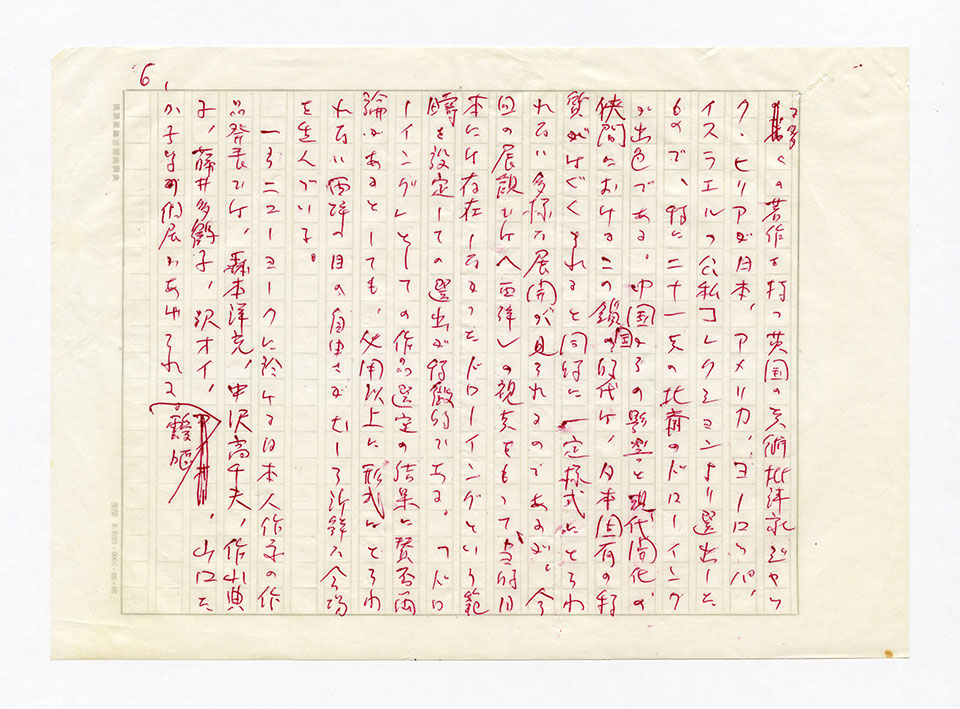 6
くの著作を持つ英国の美術批評家ジャッ
ク・ヒリアが日本、アメリカ、ヨーロッパ、
イスラエルの公私コレクションより選出した
もので、特に二十一点の北斎のドローイング
が出色である。中国からの影響と現代開化の
狭間におけるこの鎖国の時代は、日本固有の特
質がはぐくまれると同時に一定様式にとらわ
れない多様な展開が見られるのであるが、今
回の展観では〈西洋〉の視点をもって、当時日
本には存在しなかったドローイングという範
疇を設定しての選出が特徴的である。「ドロ
ーイング」としての作品選定の結果に賛否両
論があるとしても、必用以上に形式にとらわ
れない西洋の目の自由さがむしろ新鮮な会場
を生んでいる。
一方ニューヨークに於ける日本人作家の作
品発表では、森本洋充、中沢高千夫、作山典
子、藤井多鶴子、沢オイ、靉嘔、山口た
か子等の個展があげられる。